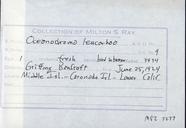 COLLECTION OF MILTON S. RAY
Oceanodroma leucorhoa
9
1 fresh 3434
Griffing Bancroft June 25, 1924
Middle Isl. - Coronado Isl. - Lower Calif